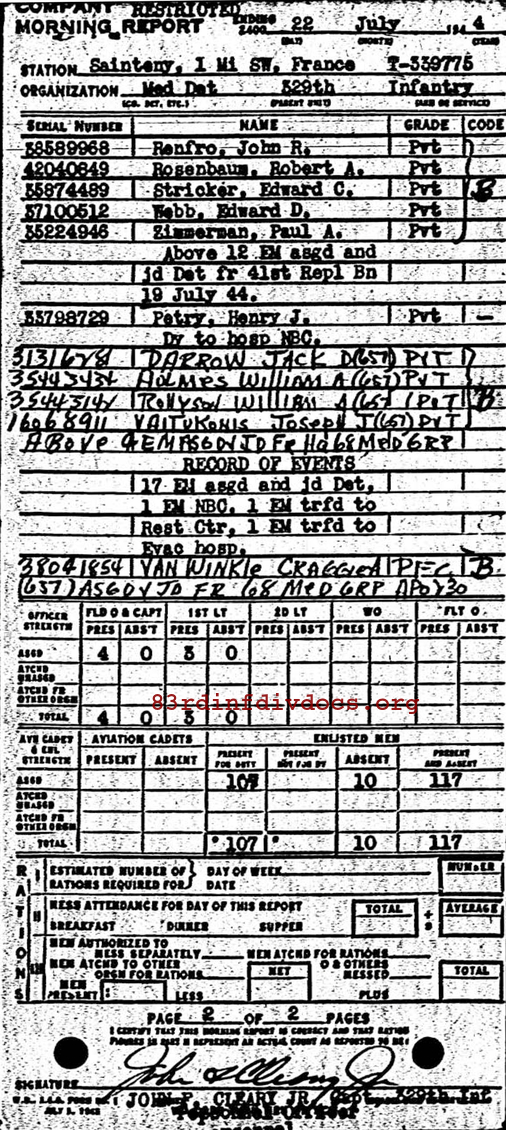 COMPANY RESTRICTED
MORNING REPORT ENDING 2400 22 July 194 4
(DAY) (MONTH) (YEAR)
STATION Sainteny, 1 Mi SW, France T-339775
ORGANIZATION Med Det 329th Infantry
(CO. DET. ETC.) (PARENT UNIT) (ARM OR SERVICE)
SERIAL NUMBER NAME GRADE CODE
38589968 Renfro, John R. Pvt
42040649 Rosenbaum, Robert A. Pvt
35874489 Stricker, Edward C. Pvt B
37100512 Webb, Edward D. Pvt
35224946 Zimmerman, Paul A. Pvt
Above 12 EM asgd and
jd Det fr 41st Repl Bn
19 July 44.
33798729 Petry, Henry J. Pvt —
Dy to hosp NBC.
DARROW JACK D (657) PVT
HOLMES WILLIAM A (657) PVT
William A (657) B
16068911 VAITUKONIS JOSEPH J (657) PVT
ABOVE 4 EM ASGD JD FR HQ 68 MED GRP
RECORD OF EVENTS
17 EM asgd and jd Det,
1 EM NBC, 1 EM trfd to
Rest Ctr, 1 EM trfd to
Evac hosp.
38041854 VAN WINKLE PFC B
(657) ASGD JD FR 68 MED GRP APO 230
OFFICER STRENGTH FLD O & CAPT 1ST LT 2D LT WO FLT O
PRES ABS'T PRES ABS'T PRES ABS'T PRES ABS'T PRES ABS'T
ASGD 4 0 3 0
ATCHD UNASGD
ATCHD FR OTHER ORGN
83rdinfdivdocs.org
TOTAL 4 0 3 0
AVN CADET & ENL STRENGTH AVIATION CADETS ENLISTED MEN
PRESENT ABSENT PRESENT FOR DUTY PRESENT NOT FOR DY ABSENT PRESENT AND ABSENT
ASGD 107 10 117
ATCHD UNASGD
ATCHD FR OTHER ORGN
TOTAL 107 10 117
RATIONS
I ESTIMATED NUMBER OF RATIONS REQUIRED FOR } DAY OF WEEK DATE NUMBER
II MESS ATTENDANCE FOR DAY OF THIS REPORT TOTAL ÷ 3 AVERAGE
BREAKFAST DINNER SUPPER
III MEN AUTHORIZED TO MESS SEPARATELY MEN ATCHD FOR RATIONS
MEN ATCHD TO OTHER ORGN FOR RATIONS NET O & OTHERS MESSED TOTAL
MEN PRESENT LESS PLUS
PAGE 2 OF 2 PAGES
I CERTIFY THAT THIS MORNING REPORT IS CORRECT AND THAT RATION
FIGURES IN PART II REPRESENT AN ACTUAL COUNT AS REPORTED TO ME
SIGNATURE John F Cleary Jr
W.D., A.G.O. FORM NO. 1 JOHN F. CLEARY JR, Capt, 329th Inf
JULY 1, 1942 Personnel Officer